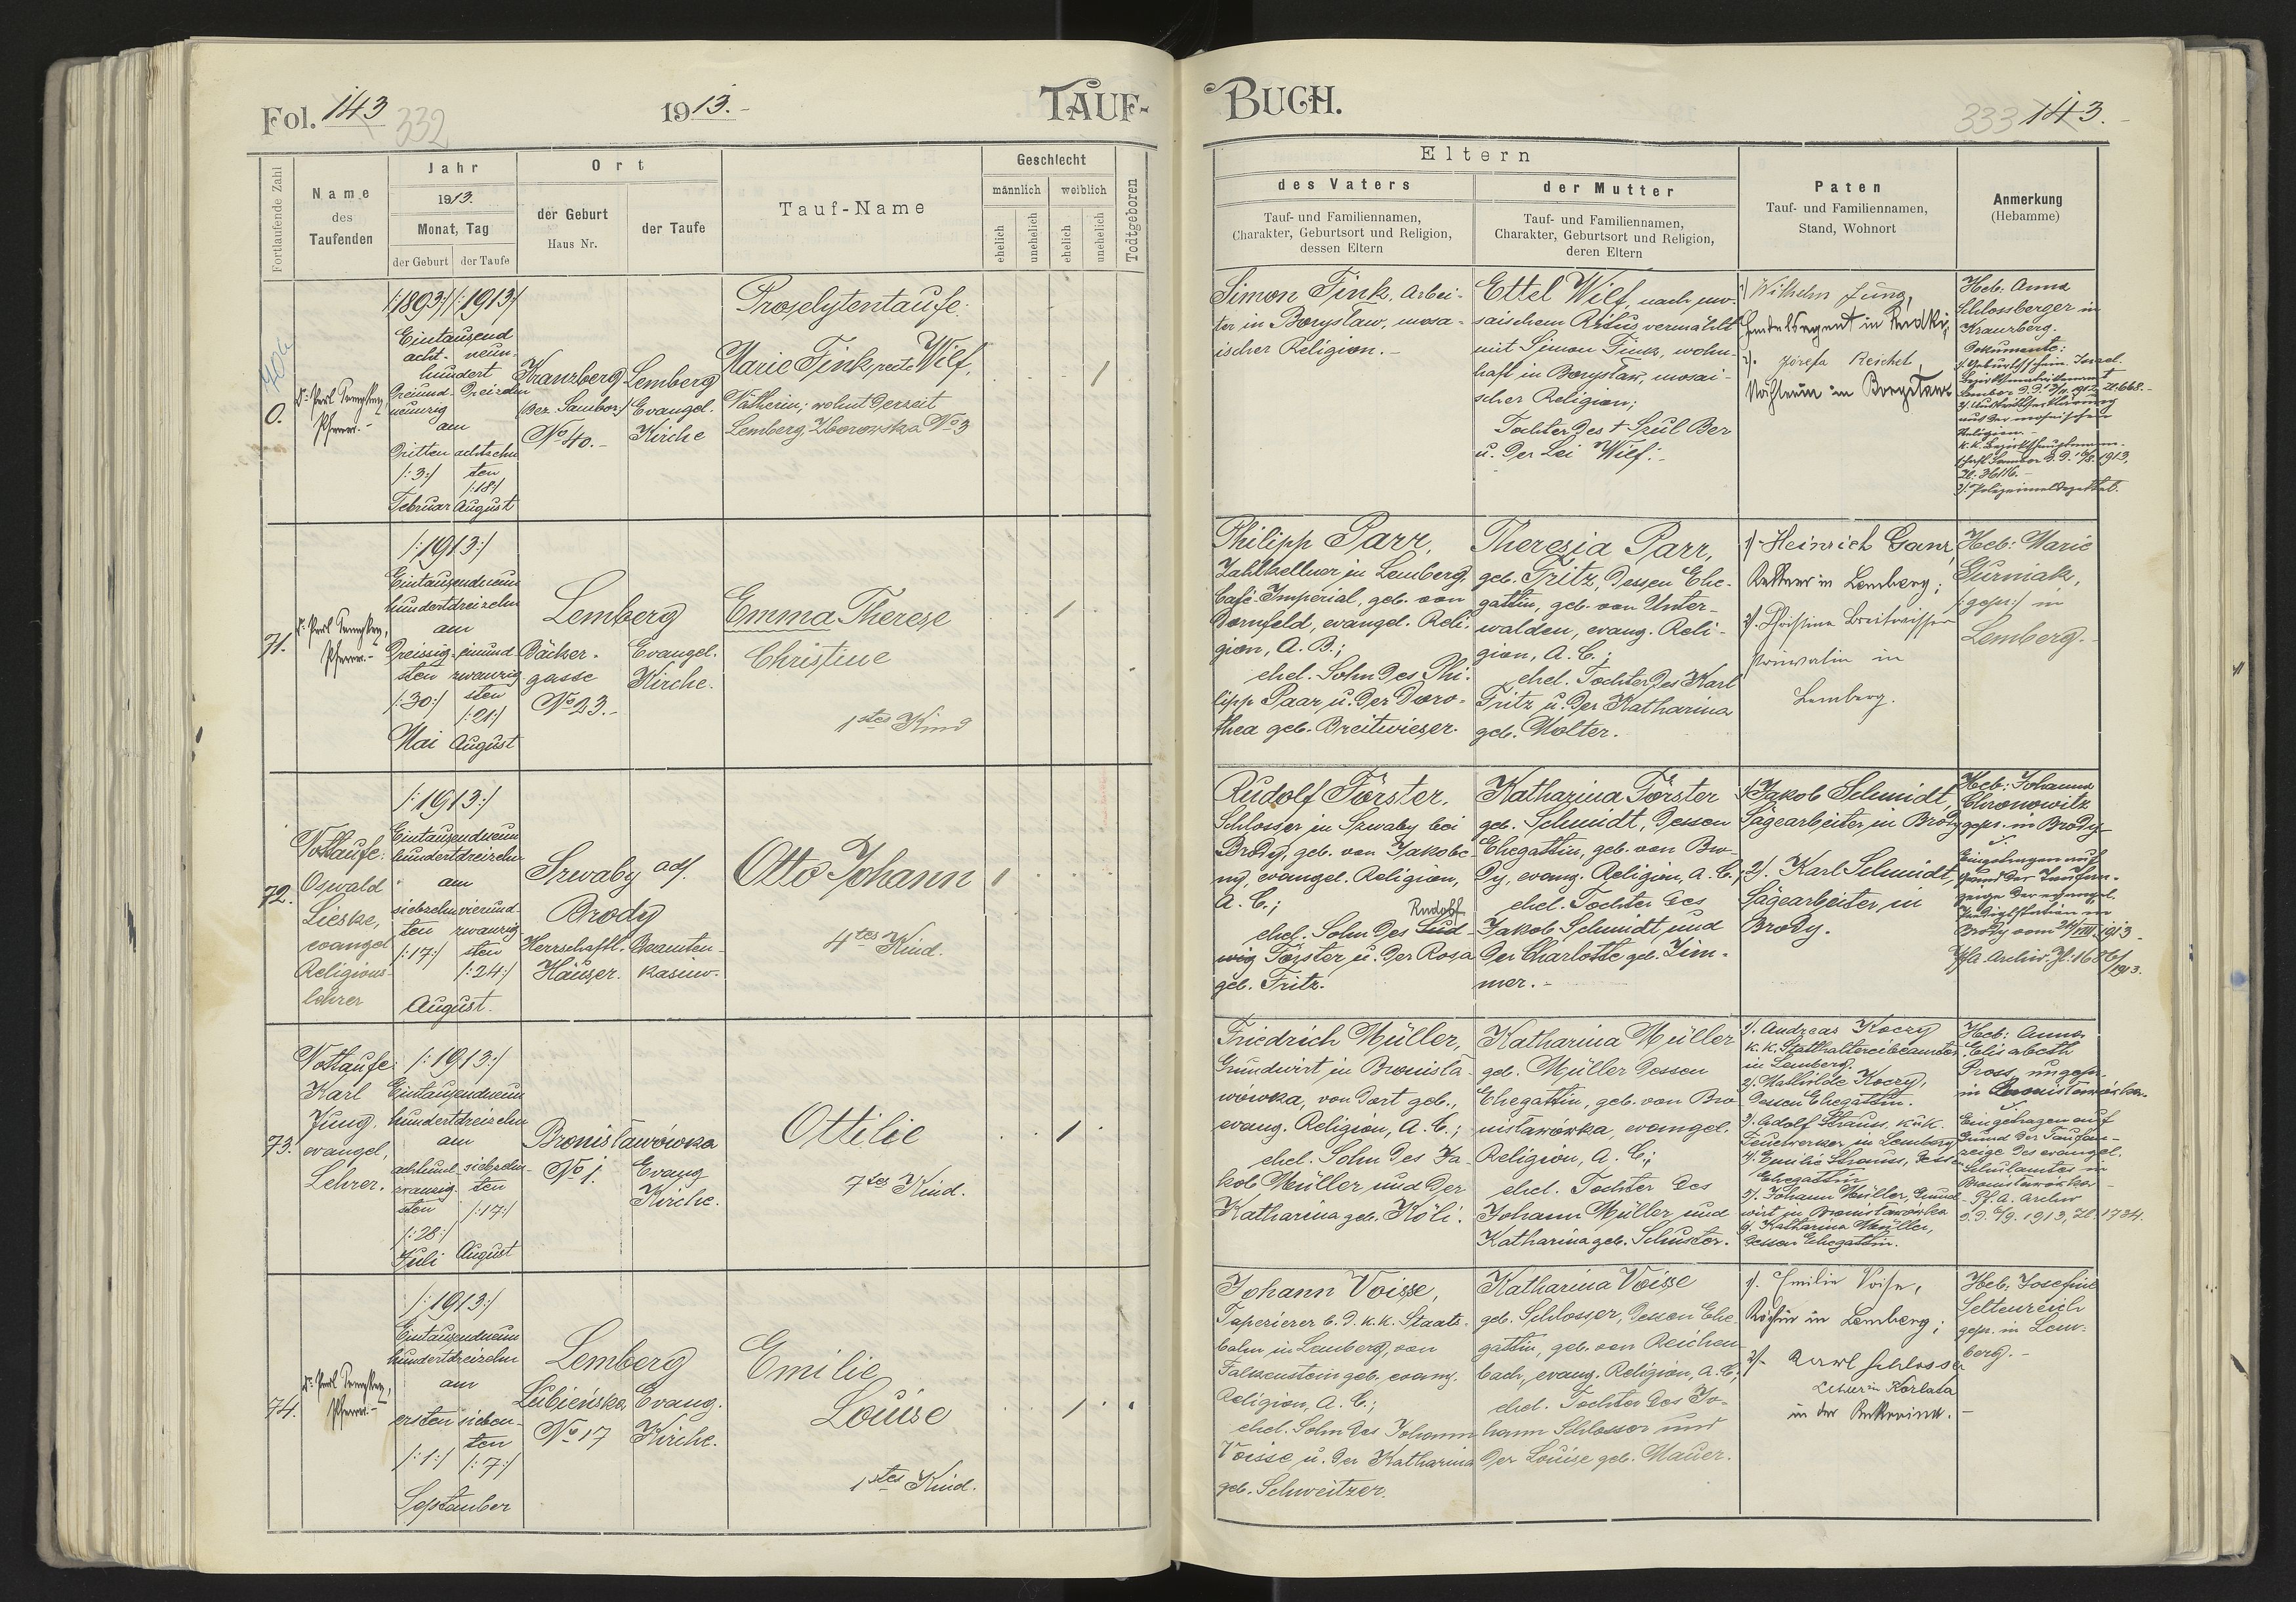 Fol. 143
332
1913.-
TAUF-
Fortlaufende Zahl
Name
des
Taufenden
Jahr
1913.
Monat, Tag
der Geburt
der Taufe
Ort
der Geburt
Haus Nr.
der Taufe
Tauf-Name
Geschlecht
männlich
weiblich
ehelich
unehelich
ehelich
unehelich
Todtgeboren
70a
0.
Pfarrer.-
/:1893:/
Eintausend
acht- neun-
hundert
Dreiund- Dreizehn
neunzig
am
Dritten
/:3:/
Februar
/:1913:/
achtzehn
ten
/:18:/
August
Kranzberg
/Bez. Sambor:/
No 40.-
Lemberg
Evangel.
Kirche
Proselytentaufe.
Marie Fink recte Wilf.
Nätherin; wohnt derzeit
Lemberg Zborowska No 3
71.
Pfarrer.-
/:1913:/
Eintausendneun
hundertdreizehn
am
Dreissig-
sten
/:30:/
Mai
einund-
zwanzig
sten
/:21:/
August
Lemberg
Bäcker-
gasse
No 23.-
Evangel.
Kirche.
Emma Therese
Christine
1stes Kind
72.
Nottaufe:
Oswald
Lieske,
evangel
Religions-
lehrer
/:1913:/
Eintausendneun
hundertdreizehn
am
siebzehn
ten
/:17:/
vierund-
zwanzig-
sten
/:24:/
August.
Szwaby ad.
Brody
Herrschaftl.
Häuser.
Beamten-
kasino.
Otto Johann
4tes Kind.
73.
Nottaufe:
Karl
Jung.
evangel,
Lehrer.
/:1913:/
Eintausendneun
hundertdreizehn
am
achtund
zwanzig-
sten
/:28:/
Juli
siebzehn-
ten
/:17:/
August
Bronisławówka
No 1.
Evang
Kirche.
Ottilie
7tes Kind.
74.
Pfarrer.-
/:1913:/
Eintausendneun
hundertdreizehn
am
ersten
/:1:/
sieben-
ten
/:7:/
September
Lemberg
Łubieńska
No 17
Evang.
Kirche.
Emilie
Louise
1stes Kind.
BUCH.
333
143.
Eltern
des Vaters
Tauf- und Familiennamen,
Charakter, Geburtsort und Religion,
dessen Eltern
der Mutter
Tauf- und Familiennamen,
Charakter, Geburtsort und Religion,
deren Eltern
Paten
Tauf- und Familiennamen,
Stand, Wohnort
Anmerkung
(Hebamme)
Simon Fink, Arbei-
ter in Boryslaw, mosa-
ischer Religion.-
Ettel Wilf, nach mo-
saischem Ritus vermählt
mit Simon Fink, wohn-
haft in Boryslaw, mosai-
scher Religion;
Tochter des † Srul Ber
u. der Lei Wilf.-
1/ Wilhelm Jung,
2/. Józefa Reichel,
Nähterin in Boryslaw
Heb. Anna
Schlossberger in
Kranzberg.
Dokumente:
Religion.-
Philipp Parr,
Zahlkellner in Lemberg,
Café-Imperial, geb. von
Dornfeld, evangel. Reli-
gion, A. B.;
ehel. Sohn des Phi-
lipp Paar u. der Doro-
thea geb. Breitwieser.
Theresia Parr,
geb. Fritz, dessen Ehe-
gattin, geb. von Unter-
walden, evang. Reli-
gion, A. C.;
ehel. Tochter des Karl
Fritz u. der Katharina
geb. Molter.
1/ Heinrich Ganz
in Lemberg;
2/. Christine Breitwieser
Privatin in
Lemberg.
Heb: Marie
Gurniak,
/:gepr:/ in
Lemberg.-
Rudolf Förster,
Schlosser in Szwaby bei
Brody, geb. von Jakobe-
ny, evangel. Religion,
A. C.;
Rudolf
ehel. Sohn des Lud-
wig Förster u. der Rosa
geb. Fritz.
Katharina Förster
geb. Schmidt, dessen
Ehegattin, geb. von Bro-
dy, evang. Religion, A. C.;
ehel. Tochter des
Jakob Schmidt und
der Charlotte geb. Zim-
mer.-
1/ Jakob Schmidt,
Sägearbeiter in Brody
2/. Karl Schmidt,
Sägearbeiter in
Brody.
Heb: Johanna
Chronowitz
gepr. in Brody
Eingetragen auf
Grund der Taufan-
zeige der evangel.
Predigtstation in
Brody vom 24/VIII. 1913
Pfa. Archiv. Zl. 1686/
1913.
Friedrich Müller,
Grundwirt in Bronisła-
wówka, von Dort geb.,
evang. Religion, A. C.;
ehel. Sohn des Ja-
kob Müller und der
Katharina geb. Köli.
Katharina Müller
geb. Müller dessen
Ehegattin, geb. von Bro
nisławówka, evangel.
Religion, A. C.;
ehel. Tochter des
Johann Müller und
Katharina geb. Schuster.
1/. Andreas Koczy
k. k. Statthaltereibeamter
in Lemberg.
2/. Mathilde Koczy,
dessen Ehegattin.
3/. Adolf Strauss, k.u.k.
Feuerwerker in Lemberg
4/. Emilie Strauss, dessen
Ehegattin
5/. Johann Müller, Grund-
wirt in Bronisławówka
6/. Katharina Müller,
dessen Ehegattin.
Heb: Anna
Elisabeth
Pross, ungepr.
in Bronisławówka.
Eingetragen auf
Grund der Taufan-
zeige des evangel.
Schulamtes in
Bronisławówka
Pf. A. Archiv
d. d. 6/9. 1913, Zl. 1734.
Johann Voisse,
Tapezierer b. d. k. k. Staats-
bahn in Lemberg, von
Falkenstein geb., evang.
Religion, A. C.;
ehel. Sohn des Johann
Voisse u. der Katharina
geb. Schweitzer.
Katharina Voisse
geb. Schlosser, dessen Ehe-
gattin, geb. von Reichen-
bach, evang. Religion, A. C.;
ehel. Tochter des Jo-
hann Schlosser und
der Louise geb. Mauer.
1/. Emilie Voise,
Köchin in Lemberg;
2/. Karl Schlosser
Lehrer in
in der Bukowina.-
Heb: Josefine
Seltenreich
gepr. in Lem-
berg.-